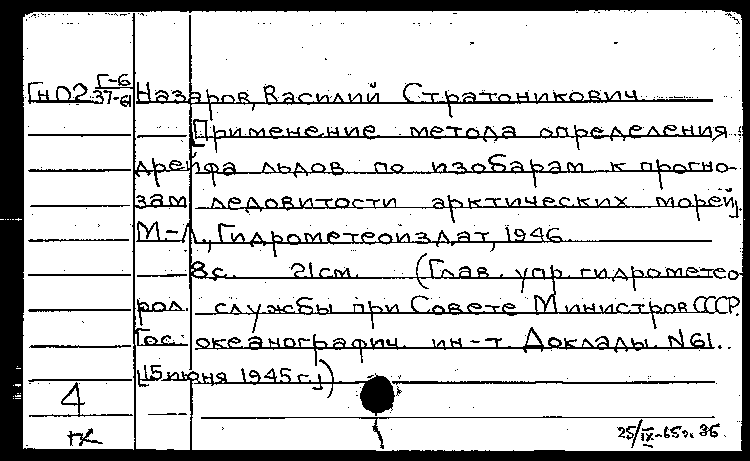 ГнО2 Г-6/37-61 Назаров, Василий Стратоникович.
[Применение метода определения
дрейфа льдов по изобарам к прогно-
зам ледовитости арктических морей].
М.-Л., Гидрометеоиздат, 1946.
8с. 21см. (Глав. упр. гидрометео
рол. службы при Совете Министров СССР.
Гос. океанографич. ин-т. Доклады. N61.
[15 июня 1945 г.])
4
25/IX-65г. 36.